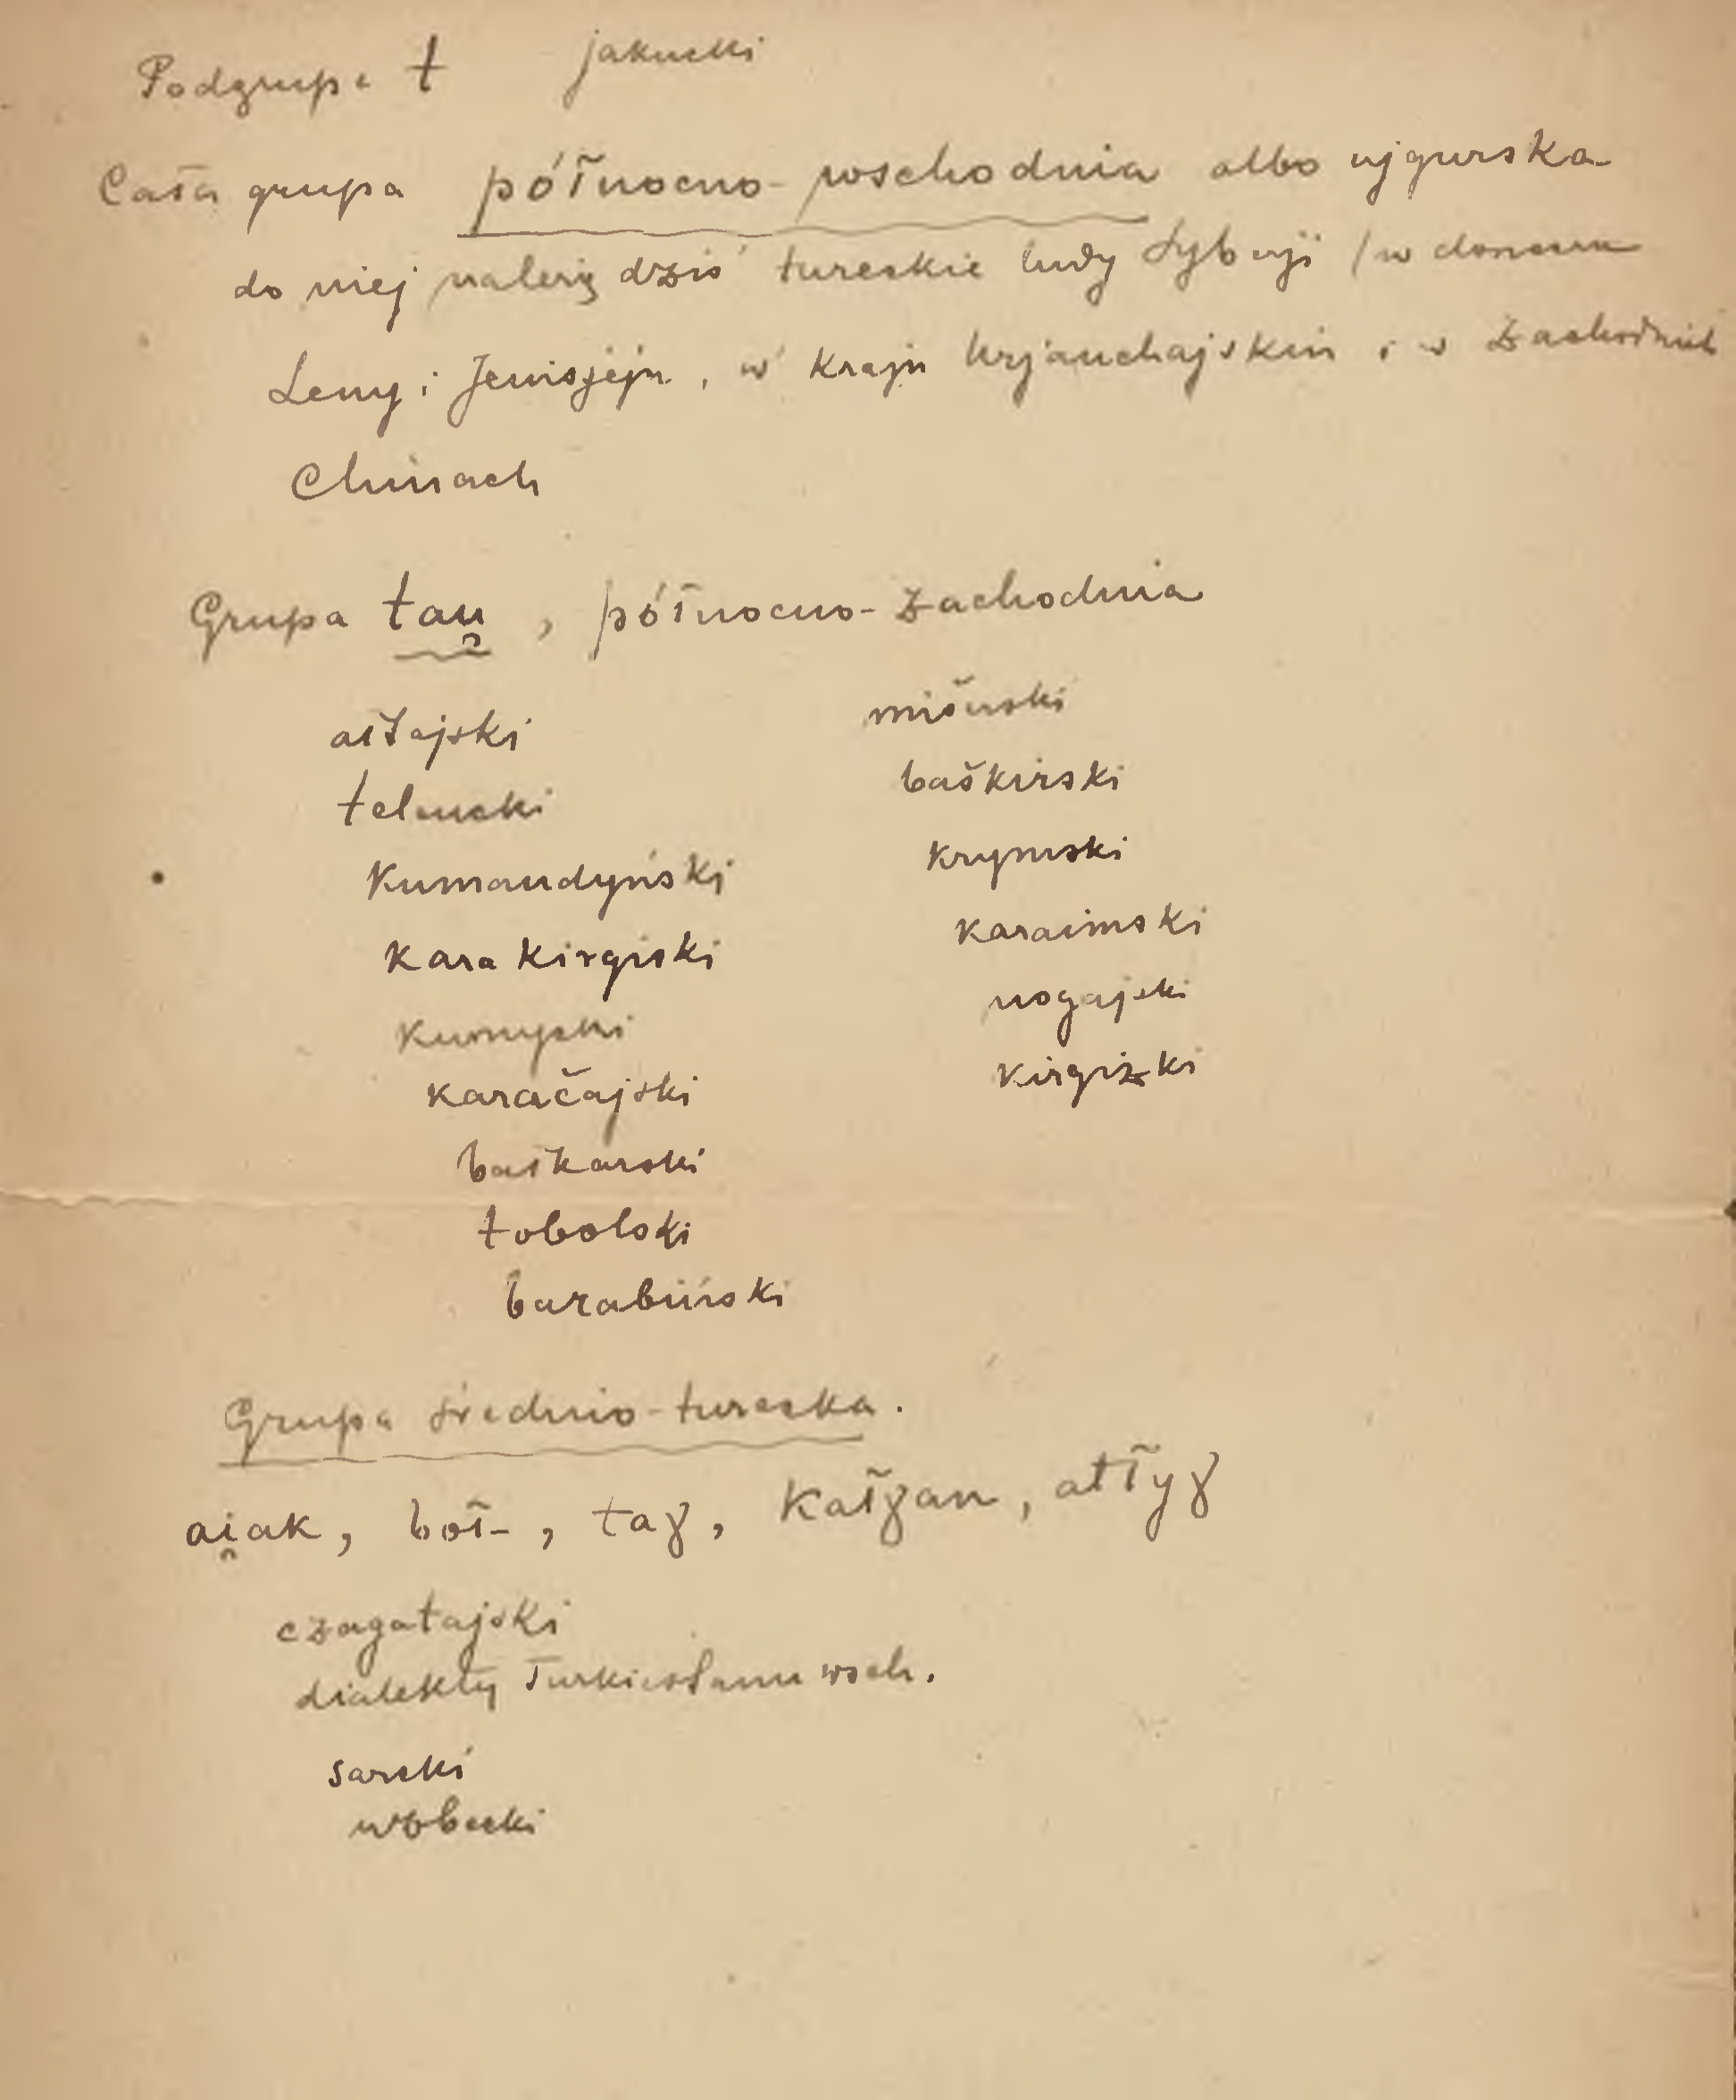 Podgrupa t jakucki
Cała grupa północno-wschodnia albo ujgurska
do niej należą dziś tureckie ludy Syberji /w dorzeczu
Leny i Jenisjeju, w kraju Urjanchajskim i w Zachodnich
Chinach
Grupa tau̯, północno-zachodnia
ałtajski
teleucki
Kumandyński
Kara Kirgiski
Kumycki
Karačajski
bałkarski
tobolski
barabiński
mišerski
baškirski
Krymski
Karaimski
nogajski
Kirgizki
Grupa średnio-turecka.
ai̯ak, boł-, taɣ, Kałɣan, atłyɣ
czagatajski
dialekty Turkiestanu wsch.
sarcki
uzbecki